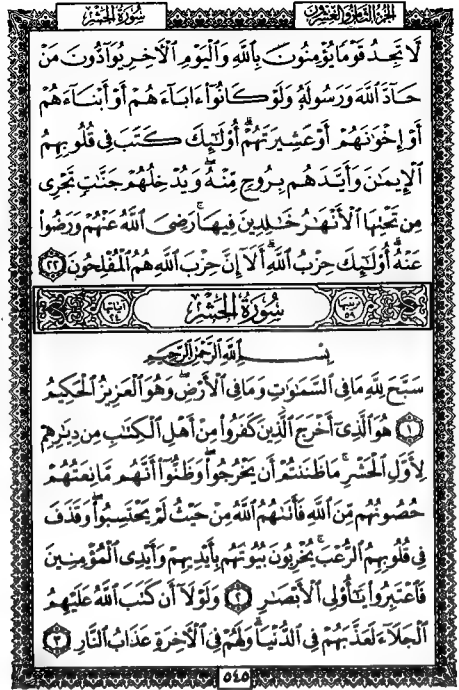 سُورَةُ الحَشْرِ الجُزْءُ الثَّامِنُ وَالْعِشْرُونَ
لَّا تَجِدُ قَوْمًا يُؤْمِنُونَ بِاللَّهِ وَالْيَوْمِ الْأَخِرِ يُوَآدُّونَ مَنْ
حَآدَّ اللَّهَ وَرَسُولَهُ وَلَوْ كَانُوٓا۟ ءَابَآءَهُمْ أَوْ أَبْنَآءَهُمْ
أَوْ إِخْوَٰنَهُمْ أَوْ عَشِيرَتَهُمْ ۚ أُو۟لَٰٓئِكَ كَتَبَ فِى قُلُوبِهِمُ
الْإِيمَٰنَ وَأَيَّدَهُم بِرُوحٍ مِّنْهُ ۖ وَيُدْخِلُهُمْ جَنَّٰتٍ تَجْرِى
مِن تَحْتِهَا الْأَنْهَٰرُ خَٰلِدِينَ فِيهَا ۚ رَضِىَ اللَّهُ عَنْهُمْ وَرَضُوا۟
عَنْهُ ۚ أُو۟لَٰٓئِكَ حِزْبُ اللَّهِ ۚ أَلَآ إِنَّ حِزْبَ اللَّهِ هُمُ الْمُفْلِحُونَ ٢٢
ترتيبها ٥٩ سُورَةُ الحَشْرِ آياتها ٢٤
بِسْمِ اللَّهِ الرَّحْمَٰنِ الرَّحِيمِ
سَبَّحَ لِلَّهِ مَا فِى السَّمَٰوَٰتِ وَمَا فِى الْأَرْضِ ۖ وَهُوَ الْعَزِيزُ الْحَكِيمُ
١ هُوَ الَّذِىٓ أَخْرَجَ الَّذِينَ كَفَرُوا۟ مِنْ أَهْلِ الْكِتَٰبِ مِن دِيَٰرِهِمْ
لِأَوَّلِ الْحَشْرِ ۚ مَا ظَنَنتُمْ أَن يَخْرُجُوا۟ ۖ وَظَنُّوٓا۟ أَنَّهُم مَّانِعَتُهُمْ
حُصُونُهُم مِّنَ اللَّهِ فَأَتَىٰهُمُ اللَّهُ مِنْ حَيْثُ لَمْ يَحْتَسِبُوا۟ ۖ وَقَذَفَ
فِى قُلُوبِهِمُ الرُّعْبَ ۚ يُخْرِبُونَ بُيُوتَهُم بِأَيْدِيهِمْ وَأَيْدِى الْمُؤْمِنِينَ
فَاعْتَبِرُوا۟ يَٰٓأُو۟لِى الْأَبْصَٰرِ ٢ وَلَوْلَآ أَن كَتَبَ اللَّهُ عَلَيْهِمُ
الْجَلَآءَ لَعَذَّبَهُمْ فِى الدُّنْيَا ۖ وَلَهُمْ فِى الْأَخِرَةِ عَذَابُ النَّارِ ٣
٥٤٥